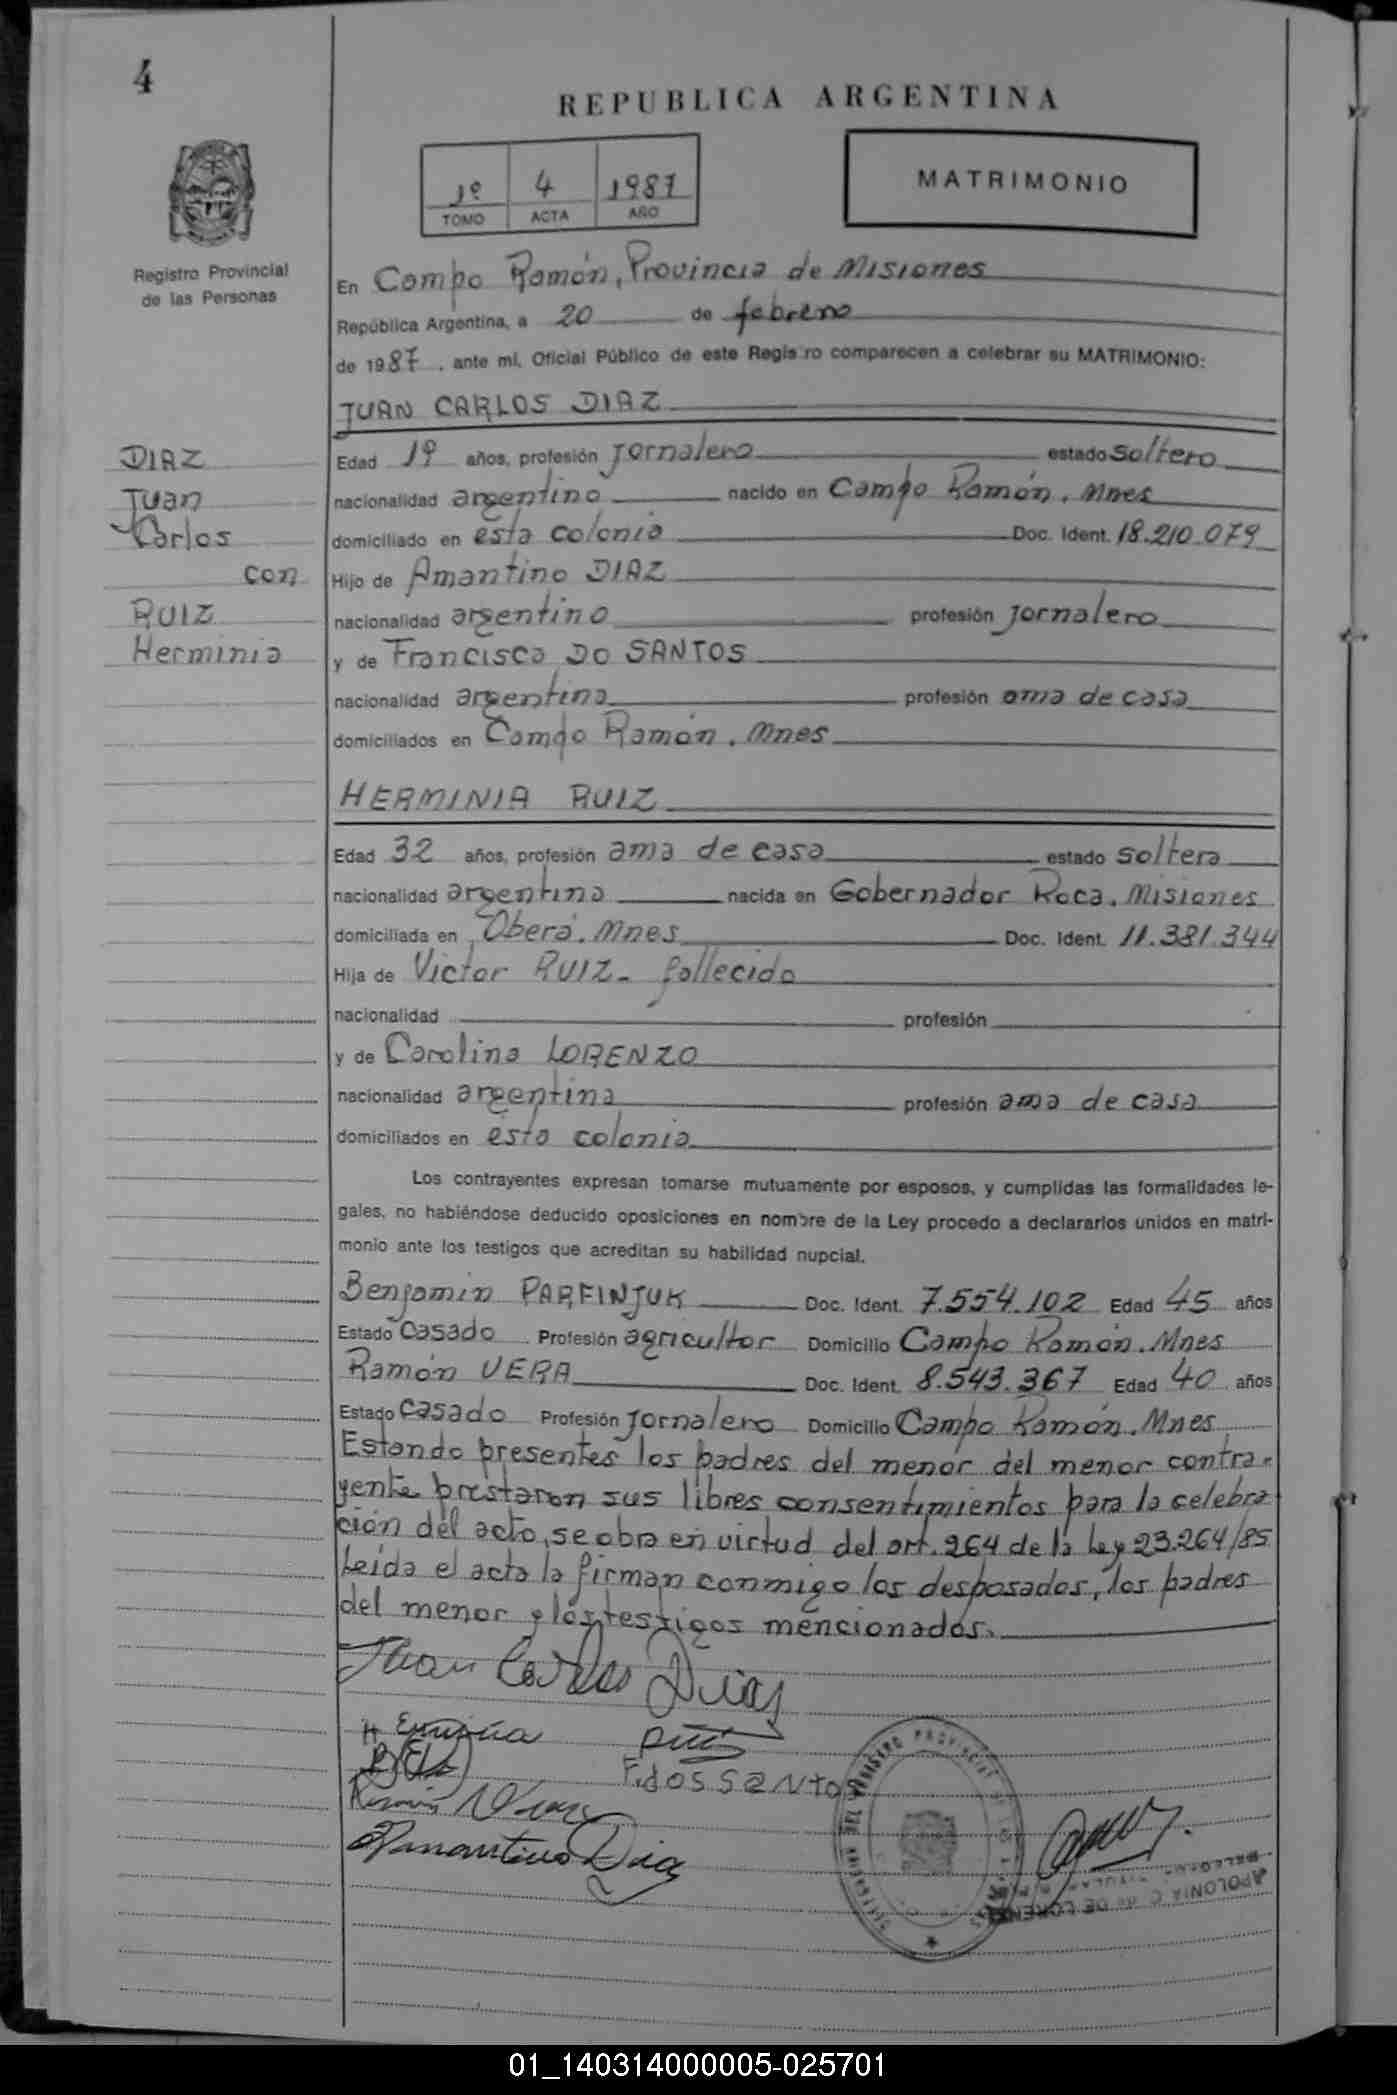 4
REPUBLICA ARGENTINA
1º 4 1987
TOMO ACTA AÑO
MATRIMONIO
Registro Provincial
de las Personas
En Campo Ramón, Provincia de Misiones
República Argentina, a 20 de febrero
de 1987, ante mí, Oficial Público de este Registro comparecen a celebrar su MATRIMONIO:
JUAN CARLOS DIAZ
DIAZ
Juan
Carlos
con
RUIZ
Herminia
Edad 19 años, profesión jornalero estado soltero
nacionalidad argentino nacido en Campo Ramón, Mnes
domiciliado en esta colonia Doc. Ident. 18.210.079
Hijo de Amantino DIAZ
nacionalidad argentino profesión jornalero
y de Francisca DO SANTOS
nacionalidad argentina profesión ama de casa
domiciliados en Campo Ramón, Mnes
HERMINIA RUIZ
Edad 32 años, profesión ama de casa estado soltera
nacionalidad argentina nacida en Gobernador Roca, Misiones
domiciliada en Oberá, Mnes Doc. Ident. 11.381.344
Hija de Victor RUIZ - fallecido
nacionalidad profesión
y de Carolina LORENZO
nacionalidad argentina profesión ama de casa
domiciliados en esta colonia
Los contrayentes expresan tomarse mutuamente por esposos, y cumplidas las formalidades le-
gales, no habiéndose deducido oposiciones en nombre de la Ley procedo a declararlos unidos en matri-
monio ante los testigos que acreditan su habilidad nupcial.
Benjamin PARFINJUK Doc. Ident. 7.554.102 Edad 45 años
Estado Casado Profesión agricultor Domicilio Campo Ramón, Mnes
Ramón VERA Doc. Ident. 8.543.367 Edad 40 años
Estado Casado Profesión jornalero Domicilio Campo Ramón, Mnes
Estando presentes los padres del menor del menor contra-
yente prestaron sus libres consentimientos para la celebra
ción del acto, se obra en virtud del art. 264 de la Ley 23.264/85
Leída el acta la firman conmigo los desposados, los padres
del menor y los testigos mencionados.
Juan Carlos Diaz
F. dos santos
Amantino Diaz
APOLONIA C. de DE LORENZI
01_140314000005-025701